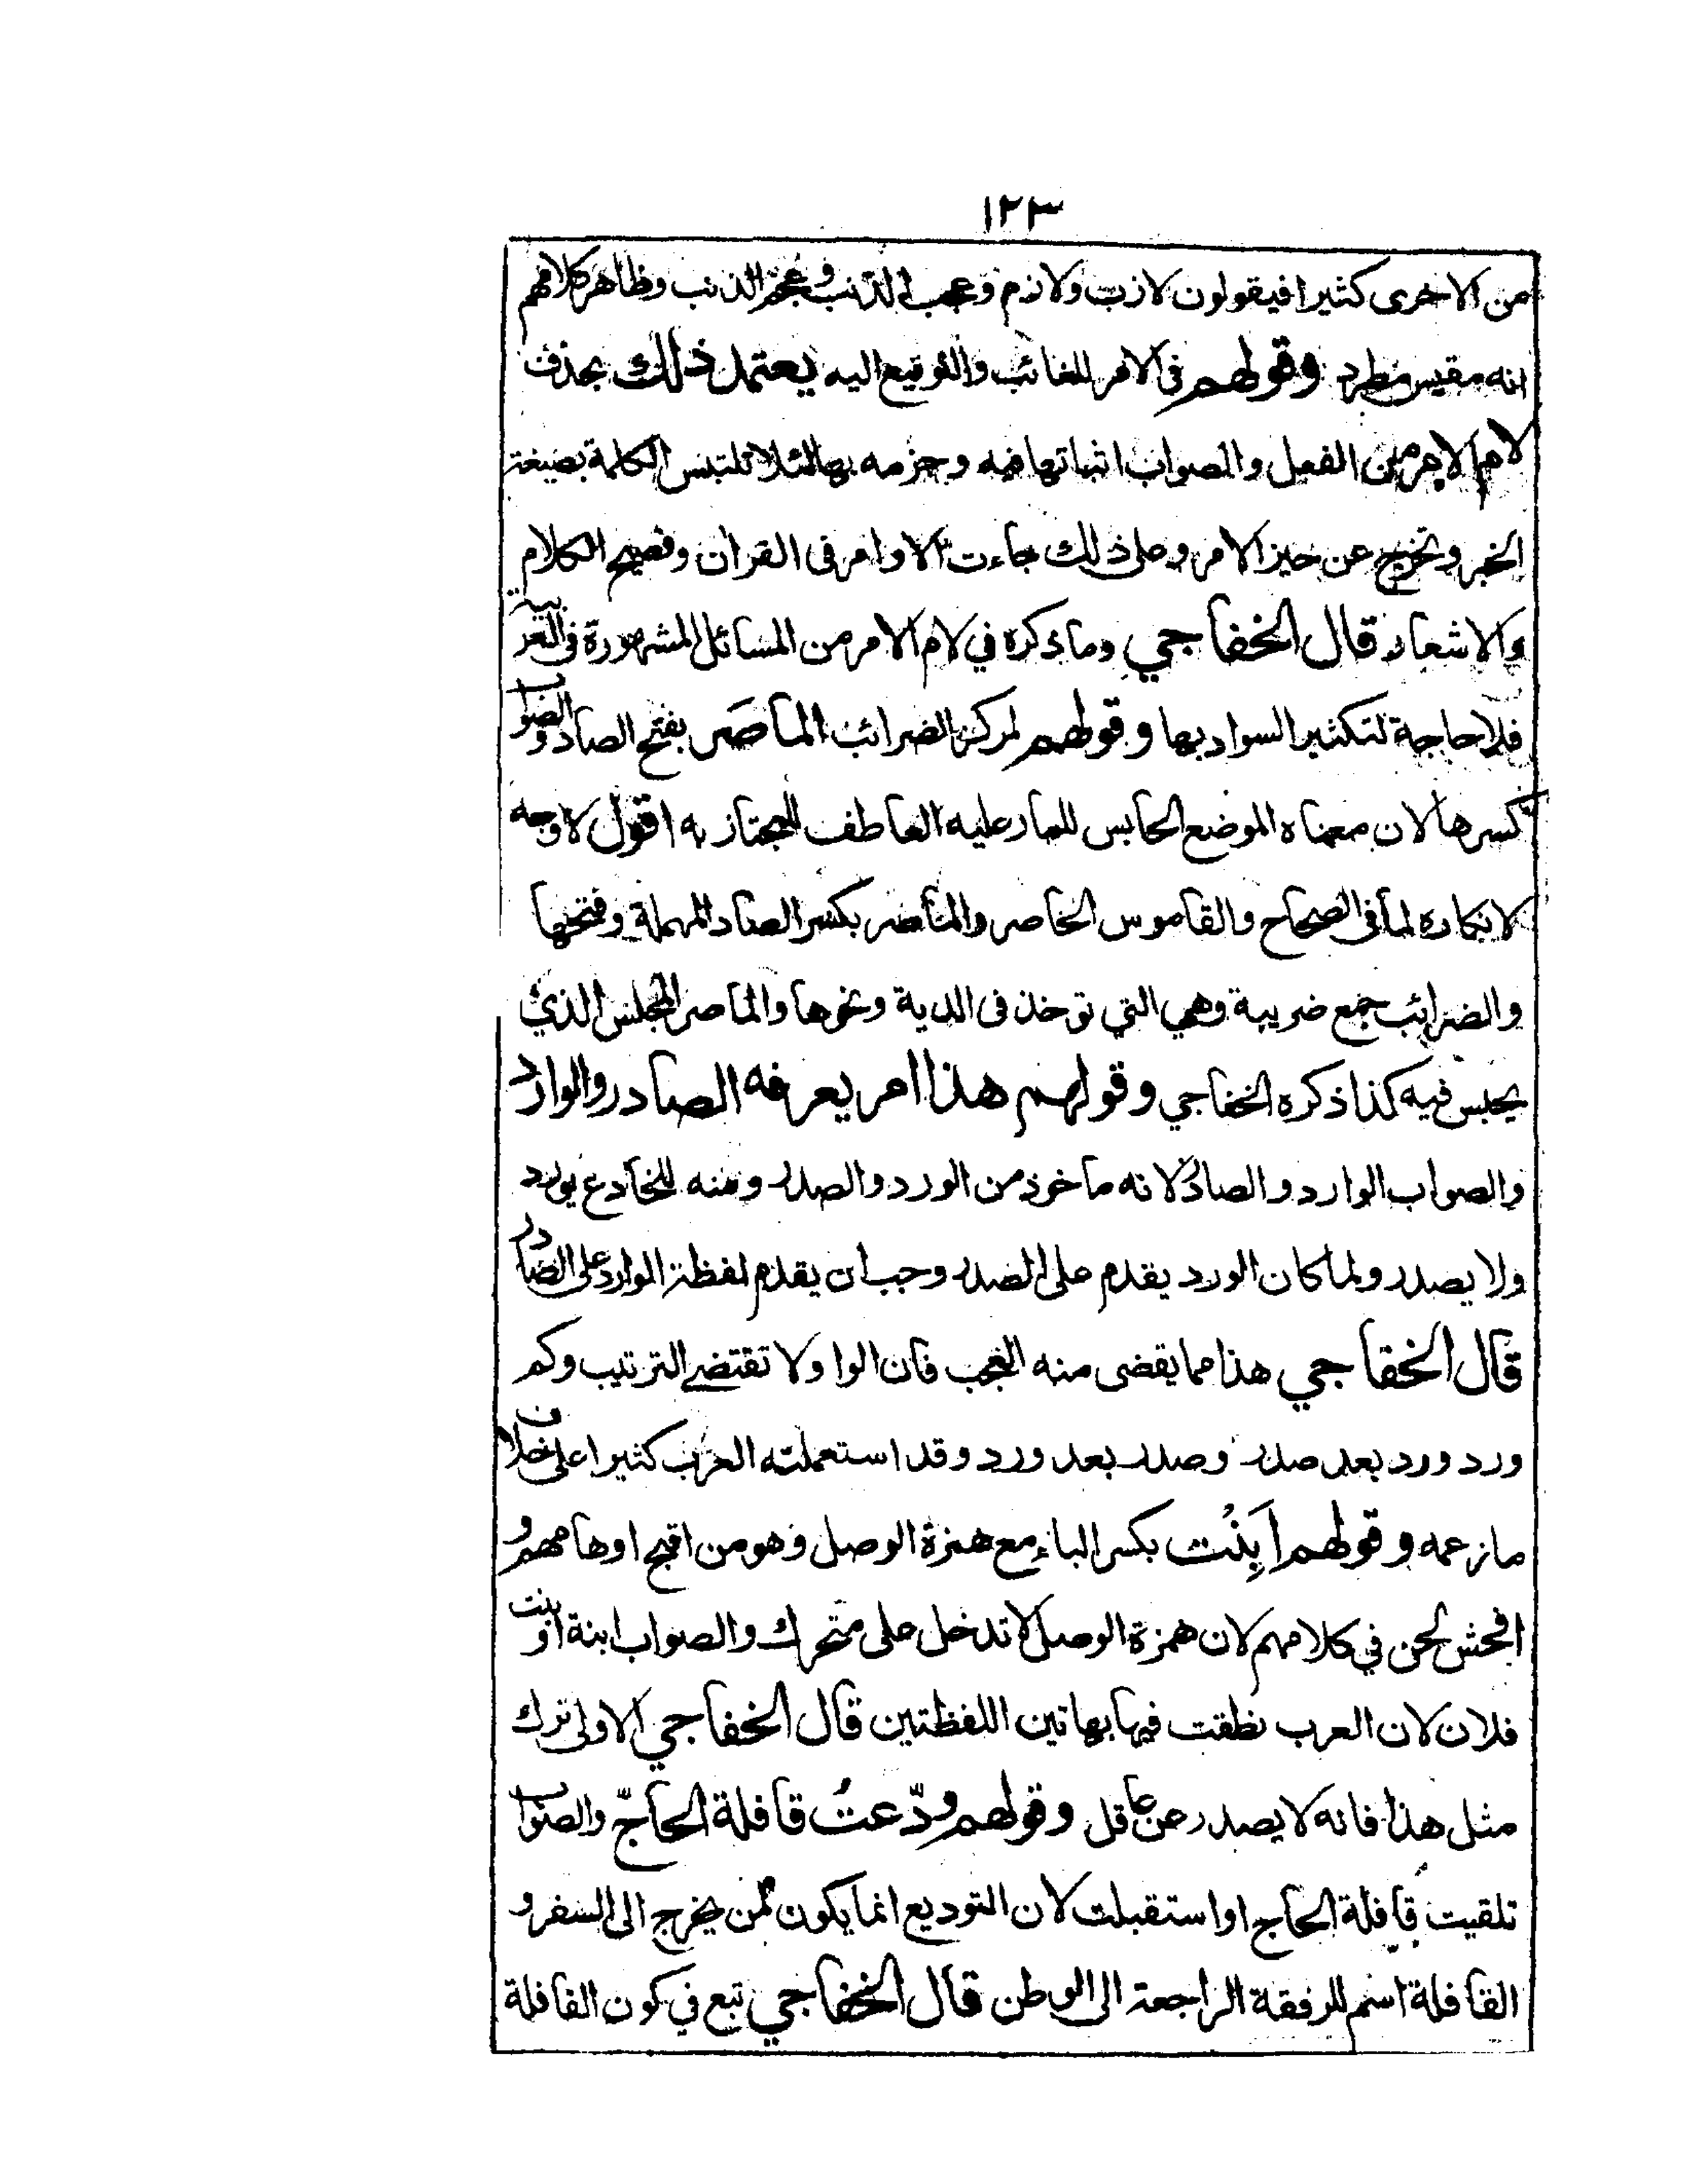 ١٢٣
من الاخرى كثيرا فيقولون لازب ولازم وعجب الذنب وعجم الذنب وظاهر كلامهم
انه مقيس مطرد وقولهم فى الامر للغائب والتوقيع اليه يعتمد ذلك بحذف
لام الامر من الفعل والصواب اثباتها فيه وجزمه بها لئلا تلتبس الكلمة بصيغة
الخبر وتخرج عن حيز الامر وعلى ذلك جاءت الاوامر فى القران وفصيح الكلام
والاشعار قال الخفاجي وما ذكره في لام الامر من المسائل المشهورة فى العربية
فلا حاجة لتكثير السواد بها وقولهم لمركز الضرائب المأصَر بفتح الصاد والصواب
كسرها لان معناه الموضع الحابس للمار عليه العاطف للمجتاز به اقول لا وجه
لانكاره لما فى الصحاح والقاموس الخاصر والمأصر بكسر الصاد المهملة وفتحها
والضرائب جمع ضريبة وهي التي توخذ فى الدية ونحوها والماصر المجلس الذي
يحبس فيه كذا ذكره الخفاجي وقولهم هذا امر يعرفه الصادر والوارد
والصواب الوارد والصادر لانه ماخوذ من الورد والصدر ومنه للخادع يورد
ولا يصدر ولما كان الورد يقدم على الصدر وجب ان يقدم لفظة الوارد على الصادر
قال الخفاجي هذا مما يقضى منه العجب فان الواو لا تقتضے الترتيب وكم
ورد ورد بعد صدر وصدر بعد ورد وقد استعملته العرب كثيرا على خلاف
ما زعمه وقولهم اَبِنْت بكسر الباء مع همزة الوصل وهو من اقبح اوهامهم و
افحش لحن في كلامهم لان همزة الوصل لا تدخل على متحرك والصواب ابنة او بنت
فلان لان العرب نطقت فيها بهاتين اللفظتين قال الخفاجي الاولى ترك
مثل هذا فانه لا يصدر عن عاقل وقولهم ودّعتُ قافلة الحاجّ والصواب
تلقيت قافلة الحاج او استقبلت لان التوديع انما يكون لمن يخرج الى السفر و
القافلة اسم للرفقة الراجعة الى الوطن قال الخفاجي تبع في كون القافلة